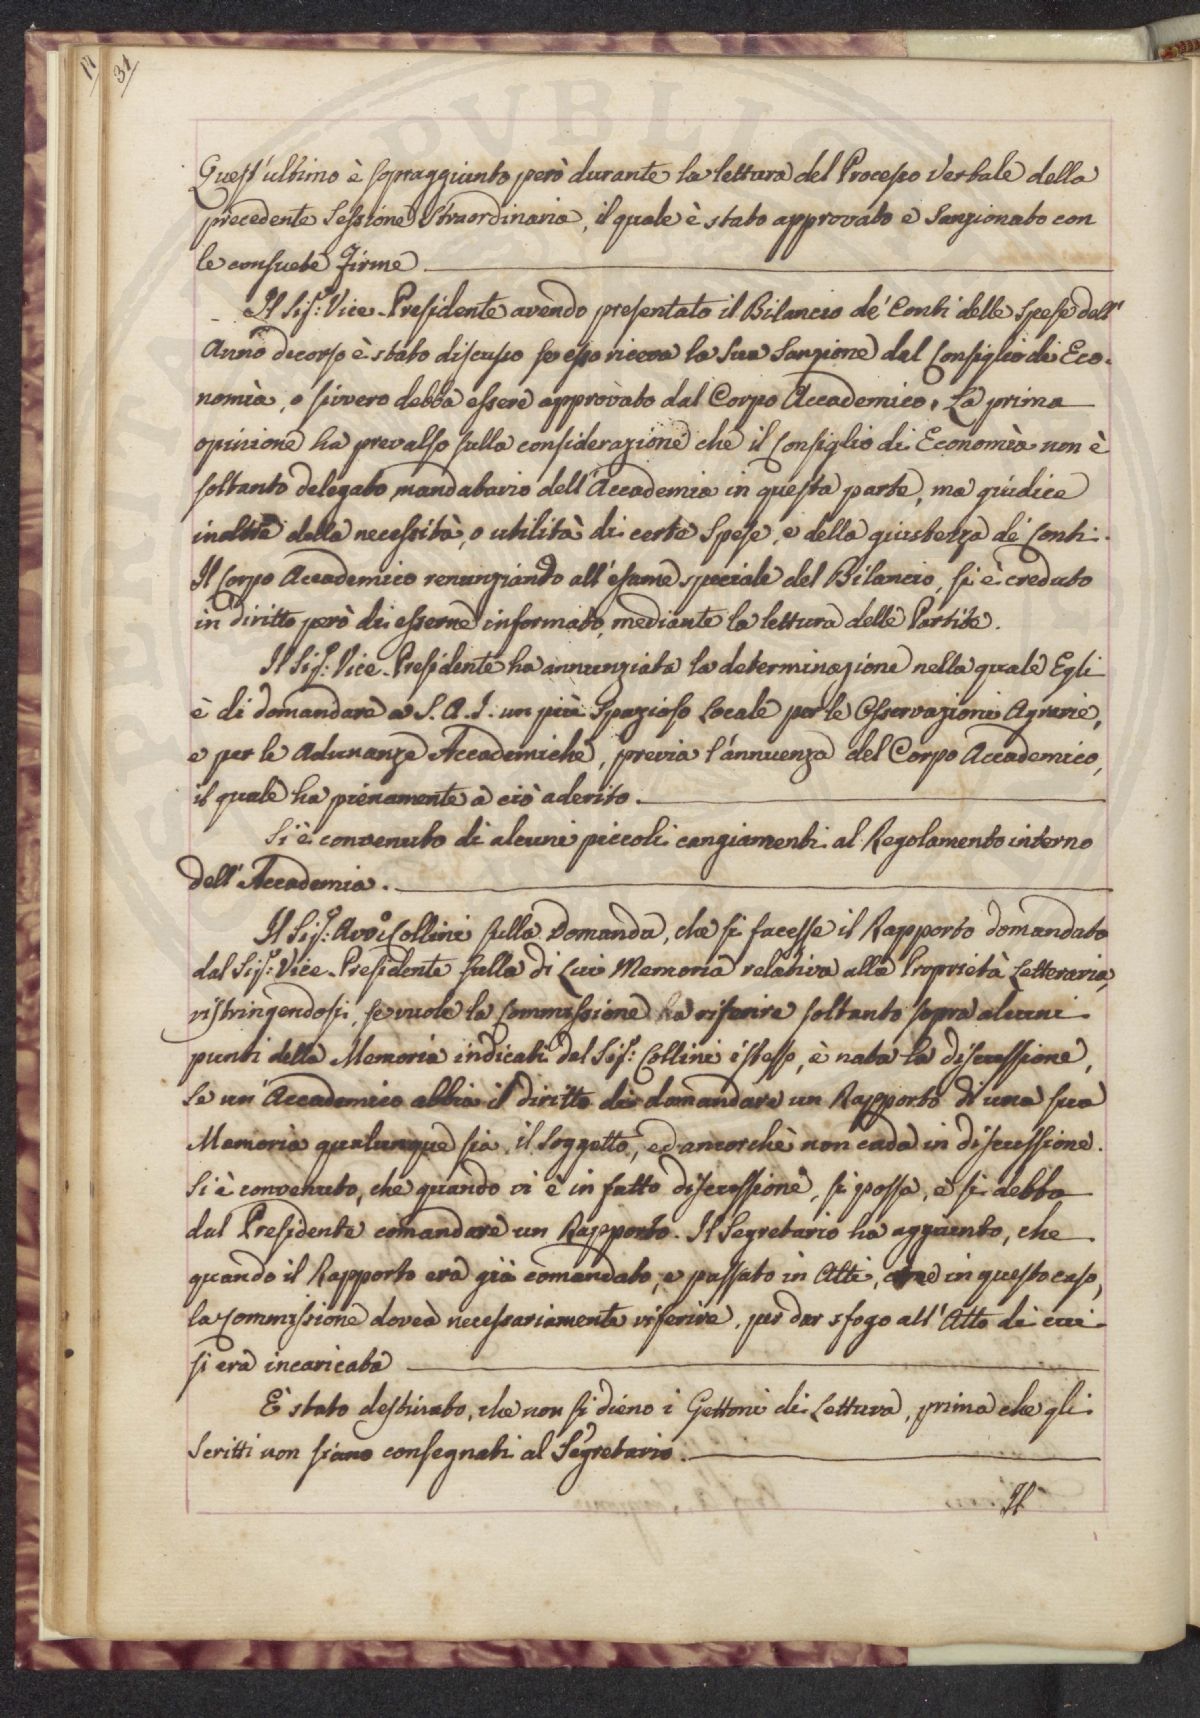 31
Quest'ultimo è sopraggiunto però durante la lettura del Processo Verbale della
precedente Sessione Straordinaria, il quale è stato approvato e Sanzionato con
le consuete Firme
Il Sig.r Vice-Presidente avendo presentato il Bilancio de' Conti delle Spese dell'
Anno decorso è stato discusso se esso riceva la Sua Sanzione dal Consiglio di Eco-
nomia, o sivvero debba essere approvato dal Corpo Accademico. La prima
opinione ha prevalso sulla considerazione che il Consiglio di Economia non è
soltanto delegato mandatario dell'Accademia in questa parte, ma giudice
inoltre della necessità, o utilità di certe Spese, e della giustezza de' Conti.
Il Corpo Accademico renunziando all'esame speciale del Bilancio, si è creduto
in diritto però di esserne informato, mediante la lettura delle Partite.
Il Sig.r Vice-Presidente ha annunziata la determinazione nella quale Egli
è di domandare a S. A. I. un più Spazioso Locale per le Osservazioni Agrarie,
e per le Adunanze Accademiche, previa l'annuenza del Corpo Accademico,
il quale ha pienamente a ciò aderito.
Si è convenuto di alcuni piccoli cangiamenti al Regolamento interno
dell'Accademia.
Il Sig.r Avv.o Collini sulla Domanda, che si facesse il Rapporto domandato
dal Sig.r Vice-Presidente sulla di Lui Memoria relativa alla Proprietà Letteraria,
ristringendosi, se vuole la Commissione ha riferire soltanto sopra alcuni
punti della Memoria indicati dal Sig.r Collini istesso, è nata la discussione,
Se un'Accademico abbia il diritto di domandare un Rapporto di una sua
Memoria qualunque sia il Soggetto, ed ancorchè non cada in discussione.
Si è convenuto, che quando vi è in fatto discussione, si possa, e si debba
dal Presidente comandare un Rapporto. Il Segretario ha aggiunto, che
quando il Rapporto era già comandato, e passato in Atti, come in questo caso,
la Commissione dovea necessariamente riferire, per dar sfogo all'Atto di cui
si era incaricata
È stato destinato, che non si dieno i Gettoni di Lettura, prima che gli
Scritti non siano consegnati al Segretario.
Il